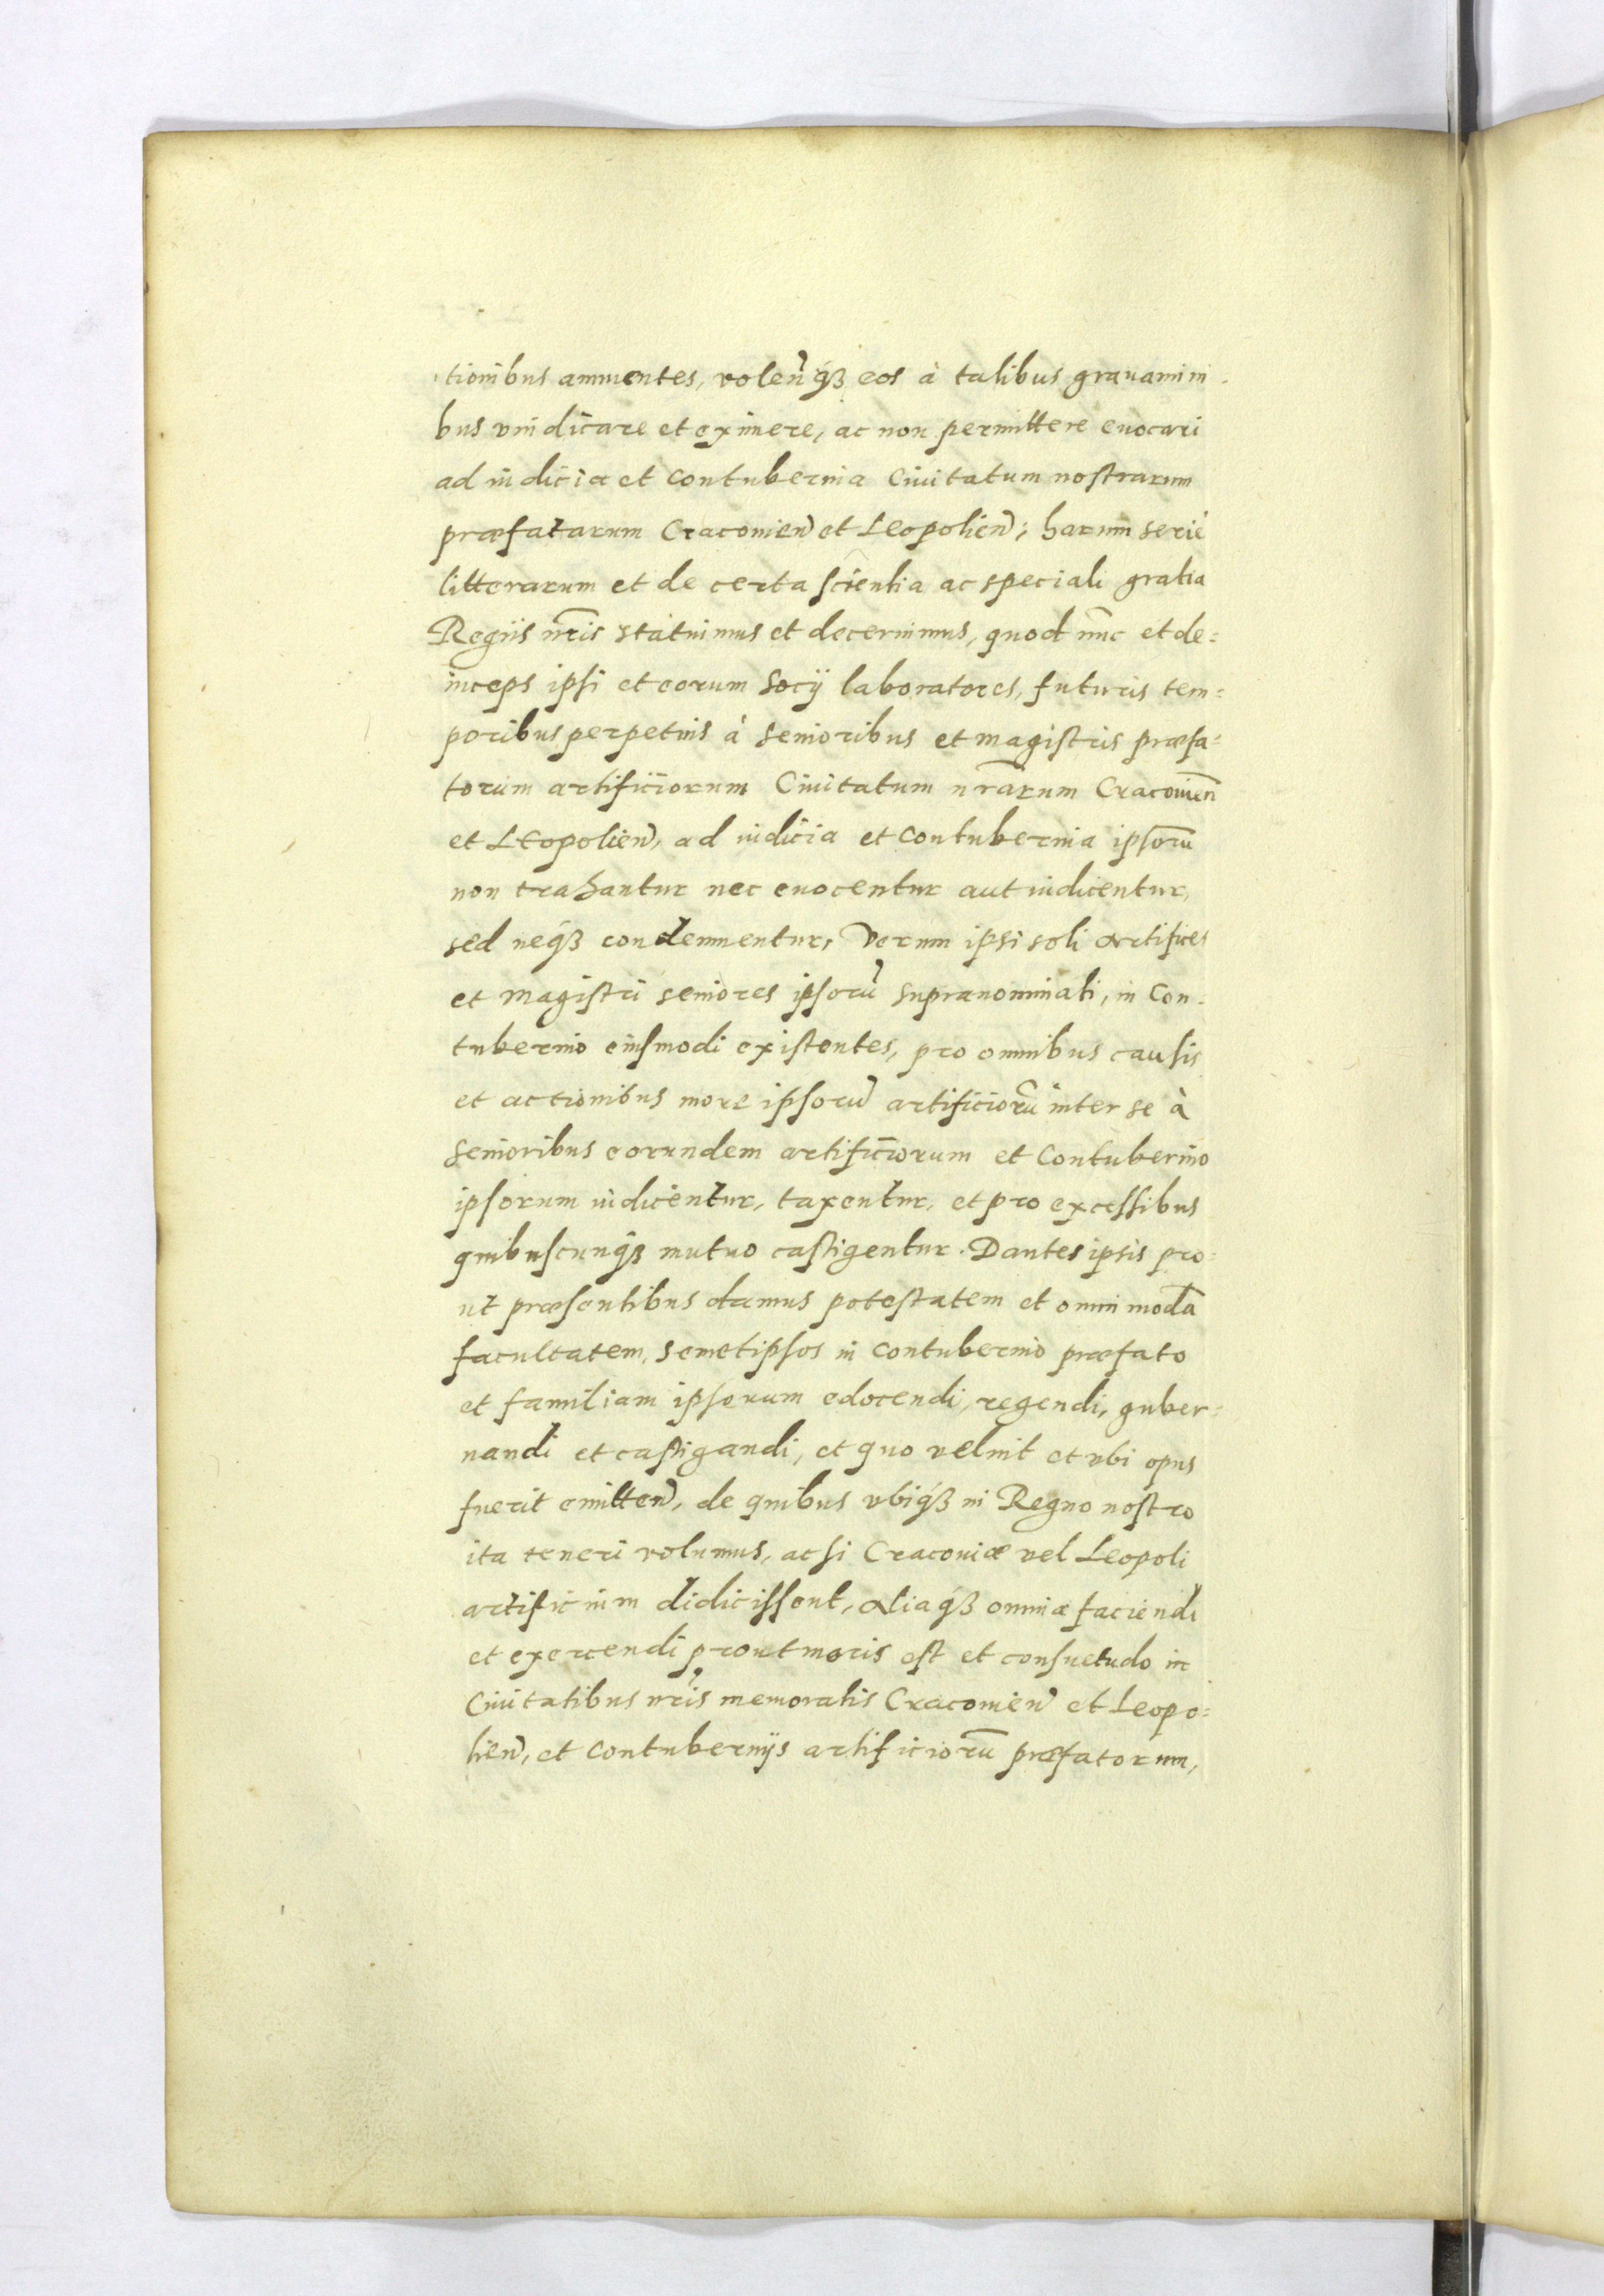 tionibus annuentes, volen̄q́ꝫ eos à talibus grauamini-
bus vindicare et eximere, ac non permittere euocari
ad iudicia et Contubernia Ciuitatum nostrarum
præfatarum Cracouien̄ et Leopolien̄; harum serie
litterarum et de certa scientia ac speciali gratia
Regiis nr̄is statuimus et decernimus, quod nūc et de=
inceps ipsi et eorum Socij laboratores, futuris tem=
poribus perpetuis à Senioribus et magistris præfa=
torum artificiorum Ciuitatum nr̄arum Cracouien̄
et Leopolien̄, ad iudicia et Contubernia ipsorū
non trahantur nec euocentur aut iudicentur,
sed neq́ꝫ condemnentur, Verum ipsi soli artifices
et Magistri seniores ipsorū supranominati, in Con=
tubernio eiusmodi existentes, pro omnibus causis
et actionibus more ipsorū artificiorū inter se à
Senioribus eorundem artificiorum et Contubernio
ipsorum iudicentur, taxentur, et pro excessibus
quibuscunq́ꝫ mutuo castigentur. Dantes ipsis pro=
ut præsentibus damus potestatem et omnimodā
facultatem, Semetipsos in Contubernio præfato
et familiam ipsorum edocendi, regendi, guber=
nandi et castigandi, et quo velint et vbi opus
fuerit emitten̄, de quibus vbiq́ꝫ in Regno nostro
ita teneri volumus, ac si Cracouiæ vel Leopoli
artificium didicissent, Aliaq́ꝫ omnia faciendi
et exercendi prout moris est et consuetudo in
Ciuitatibus nr̄is memoratis Cracouien̄ et Leopo=
lien̄, et Contubernijs artificiorū præfatorum,